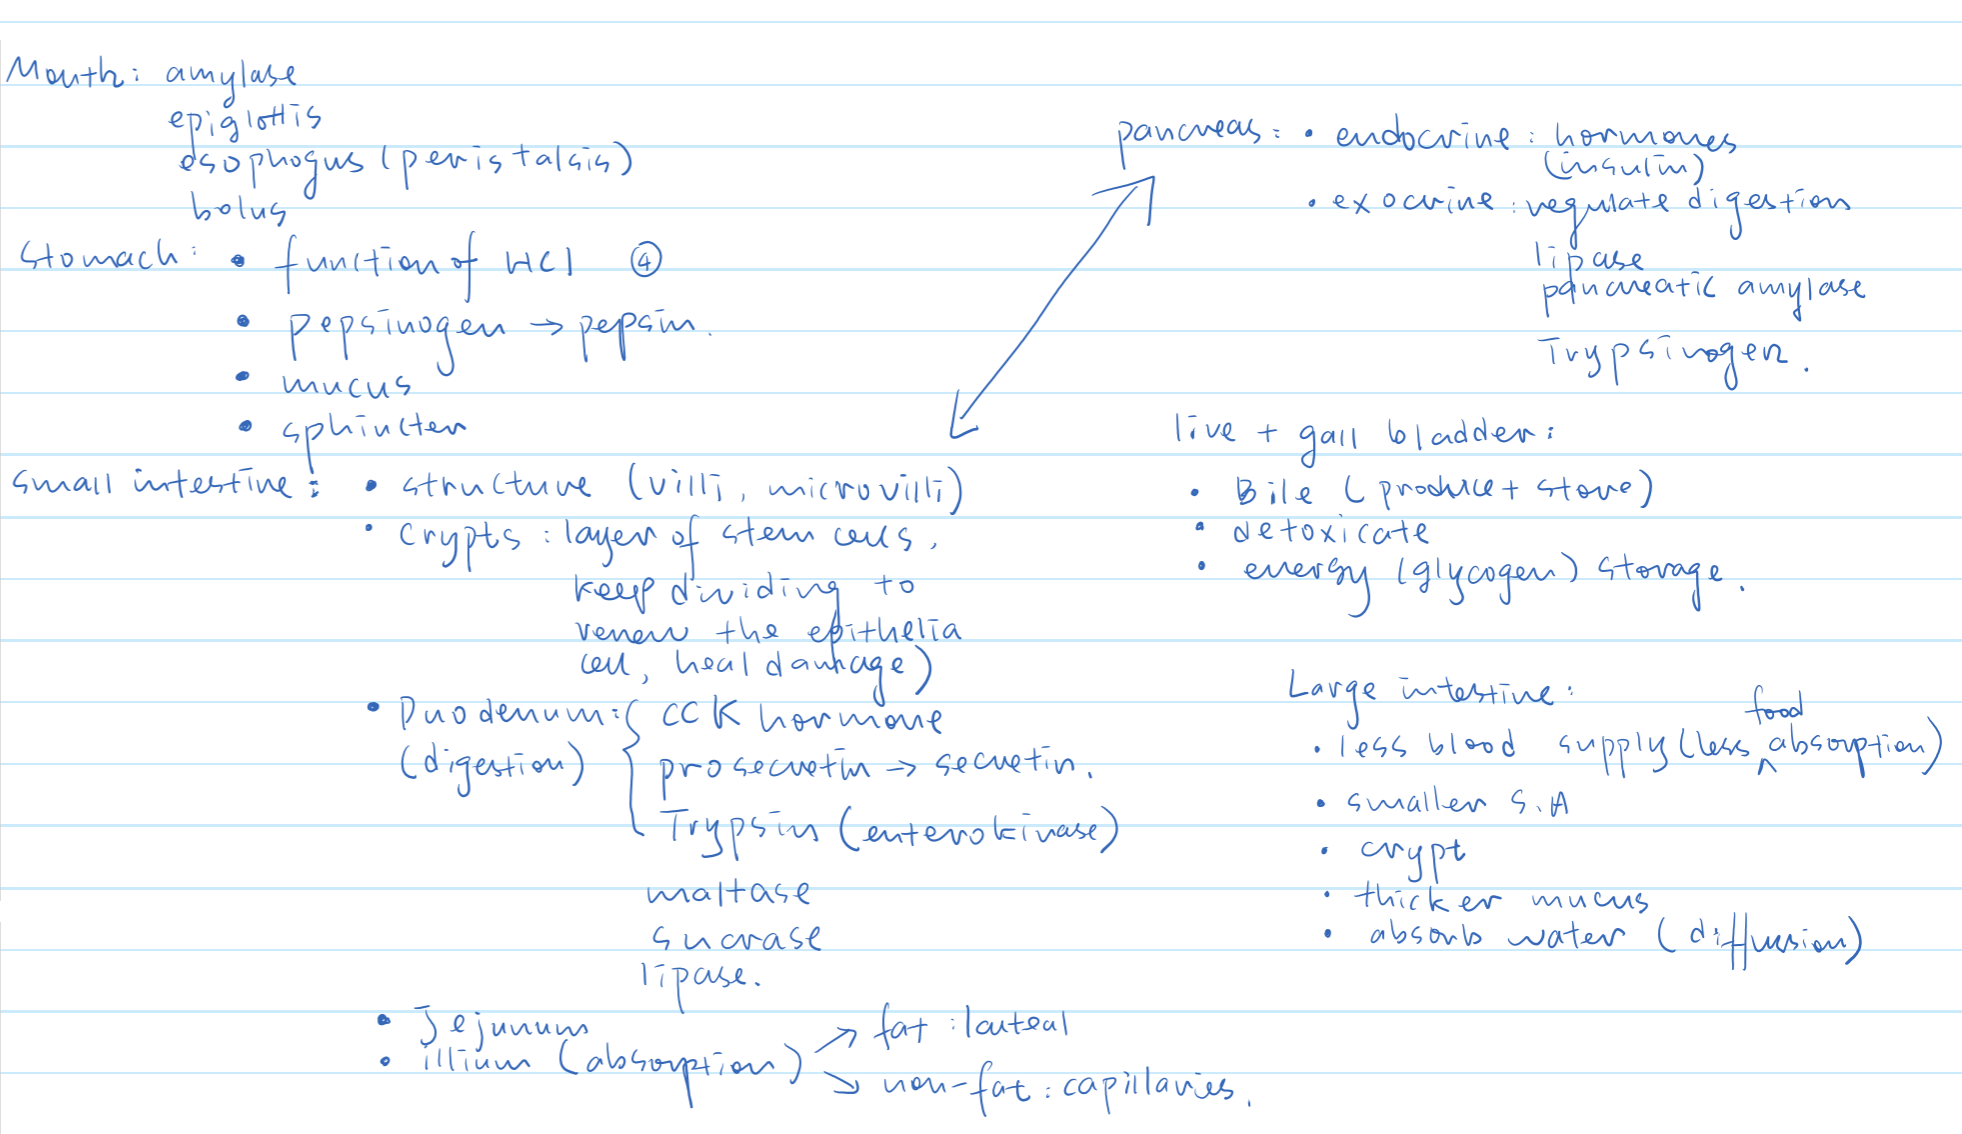 Mouth: amylase
epiglottis
esophogus (peristalsis)
bolus
Stomach: • function of HCl ④
• pepsinogen → pepsin.
• mucus
• sphincter
Small intestine: • structure (villi, microvilli)
• Crypts: layer of stem cells.
keep dividing to
renew the epithelia
cell, heal damage)
• Duodenum: { CCK hormone
(digestion) prosecretin → secretin.
Trypsin (enterokinase)
maltase
sucrase
lipase.
• Jejunum
• illium (absorption) ↗ fat: lacteal
↘ non-fat: capillaries.
pancreas: • endocrine: hormones
(insulin)
• exocrine: regulate digestion
lipase
pancreatic amylase
Trypsinogen.
live + gall bladder:
• Bile (produce + store)
• detoxicate
• energy (glycogen) storage.
Large intestine:
• less blood supply (less food absorption)
• smaller S.A
• crypt
• thicker mucus
• absorb water (diffusion)